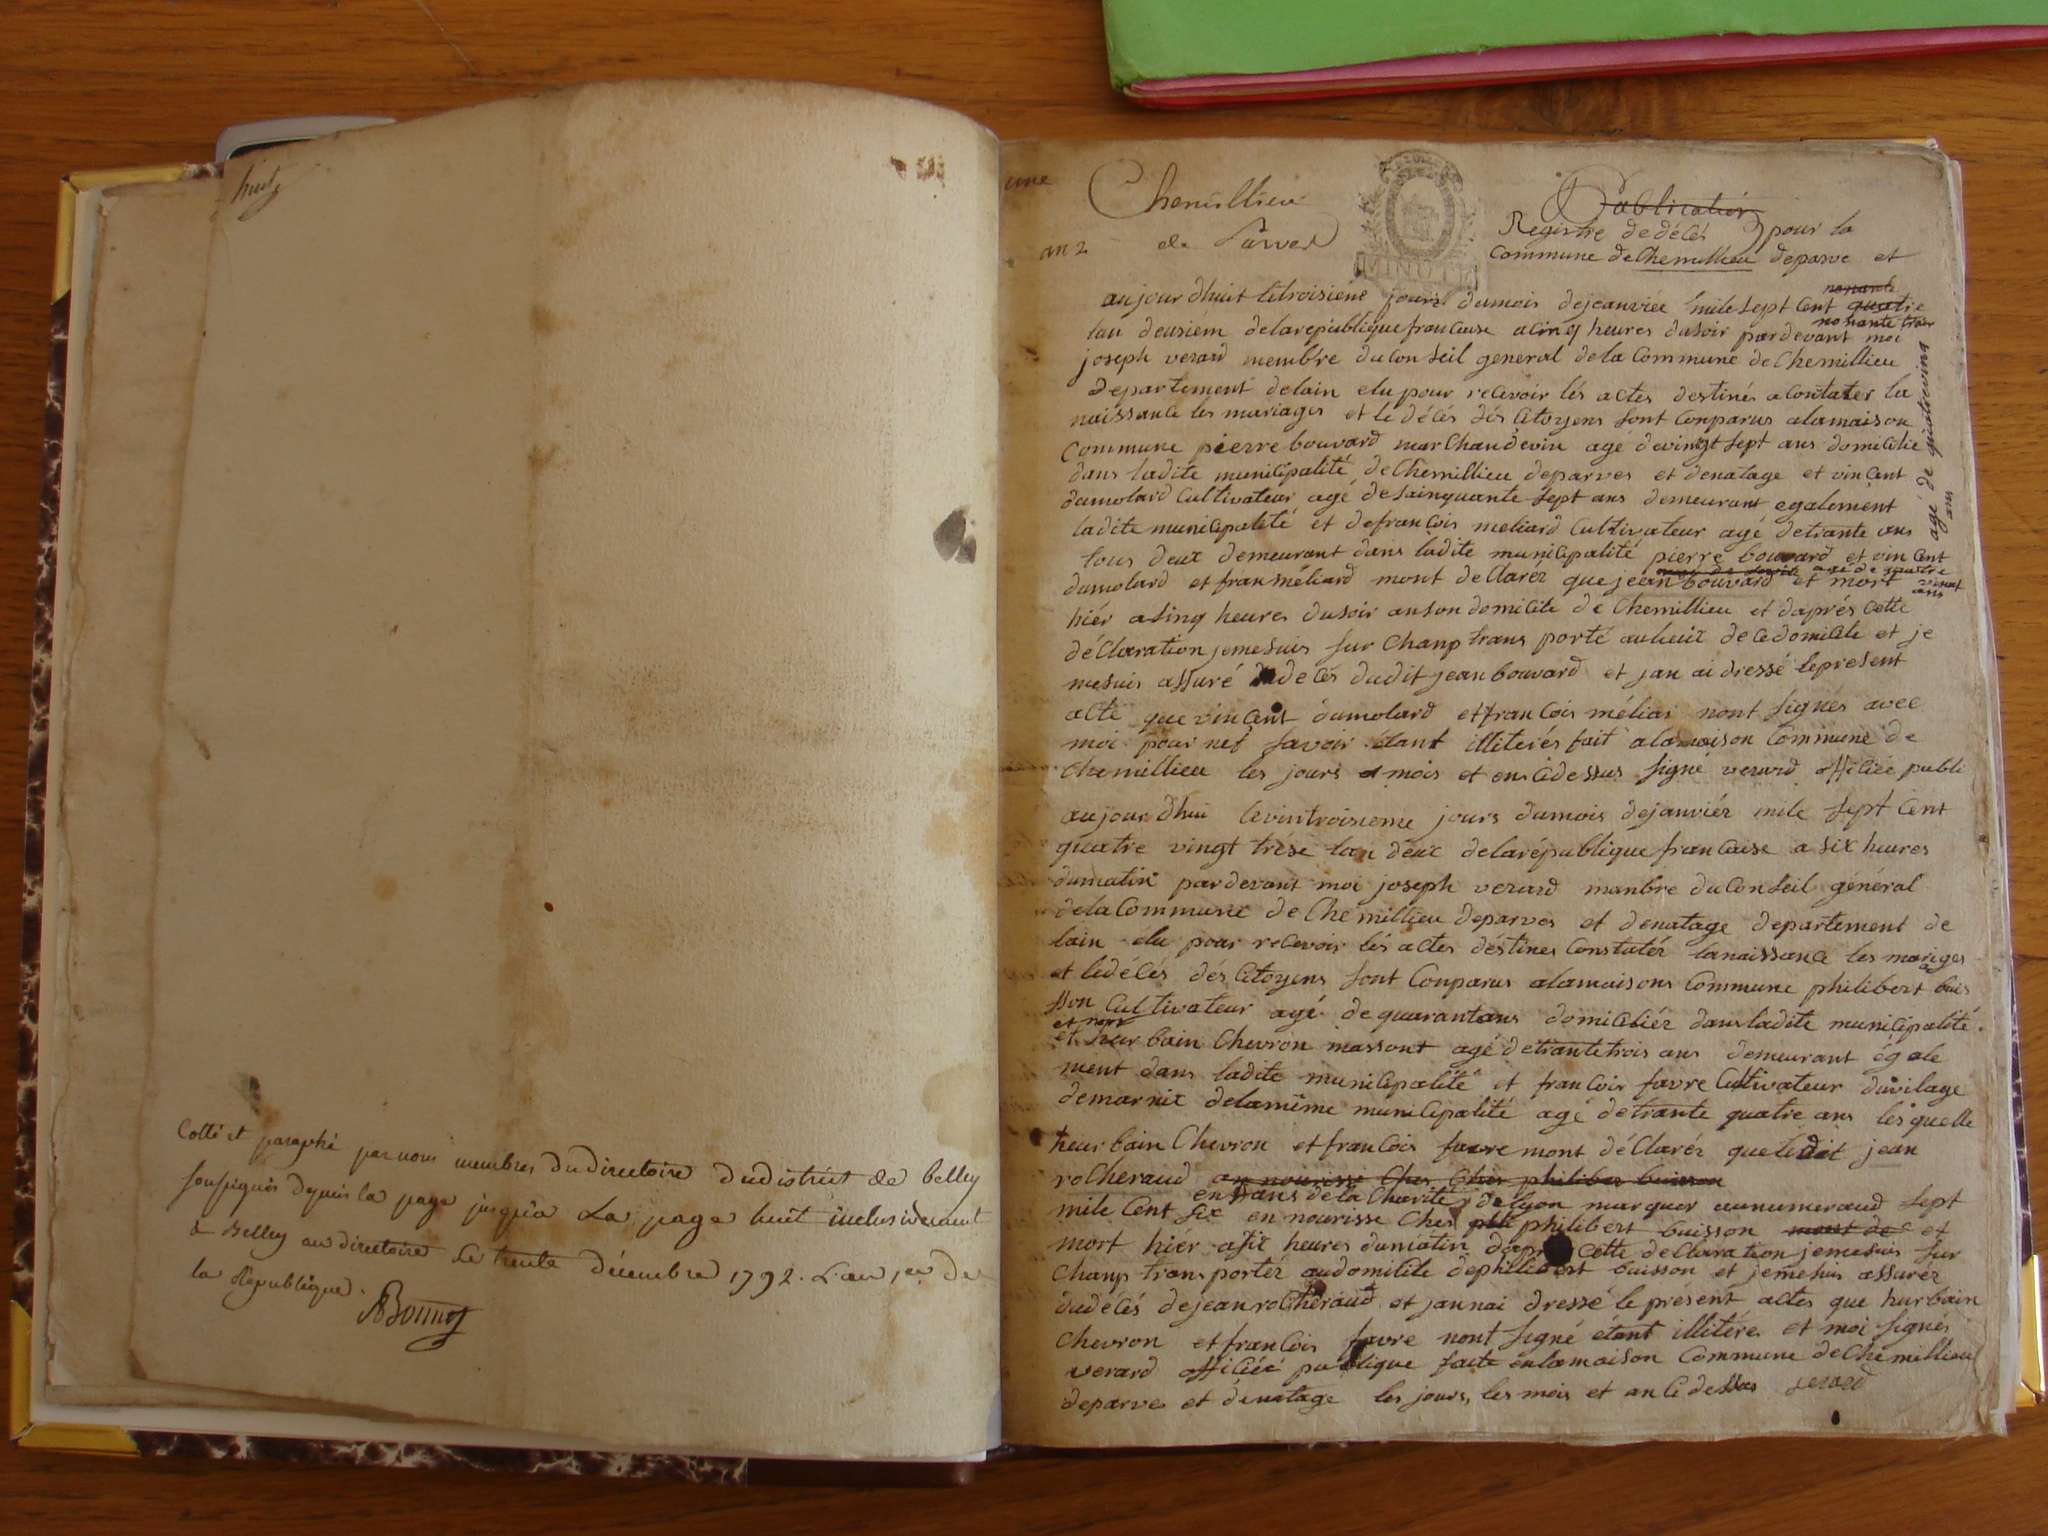 huit
Cotté et paraphé par nous membres du directoire du district de Belley
soussignés depuis la page jusqu'a La page huit inclusivement
a Belley au directoire Le trente décembre 1792. L'an 1er de
la Republique.
ABonnet
une
Chemillieu
de Parves
an 2
Publication
Registre de décés pour la
commune de Chemillieu deparve et
aujourdhuit letroisiéne jours dumois dejeanviée lmile sept Cent quatre
nonante
nonante trois
lan deusiém delarepublique francause acinq heures dusoir pardevant moi
joseph verard membre duConseil general dela Commune deChemillieu
Departement delain elu pour recevoir lés actes destinés aContater la
naissance les mariages et le décés dés Citoyens sont Conparus alamaison
Commune pierre bouvard marChandevin age devingt sept ans domicilie
dans ladite municipalité deChemillieu deparves et denatage et vincent
dumolard Cultivateur agé desainquante sept ans demeurant egalement
ladite municipalité et defrancois meliard Cultivateur agé detrante ans
tous deux demeurant dans ladite municipalité pierre bouvard et vincent
agé de quatrevint
ans
agé de quatre
vint
ans
dumolard et fran méliard mont declarér quejean bouvard et mort
hiér asinq heures dusoir anson domicile de Chemillieu et daprés cette
déClaration jemesuis sur Champ trans porté aulieux de cedomicile et je
mesuis assuré dedecés dudit jean bouvard et jan ai dressé lepresent
acte que vincent dumolard etfrancois mélias nont signés avec
moi pour nes savoir étant illiterés fait alamaison Commune de
Chemillieu les jours et mois et en cidessus signé verard officiée publi
aujourdhui levintroisieme jours dumois dejanviér mile sept Cent
quatre vingt trése lan deux delarépublique francause a six heures
dumatin pardevant moi joseph verard manbre duConseil général
delaCommune deChemillieu deparves et denatage departement de
lain élu pour recevoir lés actes destines Constatér lanaissance les mariges
et ledécés dés Citoyens sont Conparus alamaisons Commune philibert buis
son Cultivateur agé dequarantans domiciliér dans ladite municipalité
et hurbain Chevron massont agé detrantetrois ans demeurant égale
ment dans ladite municipalité et francois favre Cultivateur duvilage
demarnix delamême municipalité agé detrante quatre ans lésquelle
heurbain Chevron et francois favre mont déClarér queledit jean
rocheraud an nourisse Ches Ches philiber buisson
enfans dela Charite de lyon marquer aunumeraud sept
mile Cent six en nourisse Ches philibert buisson et
mort hier asix heures dumatin cette deClaration jemesuis sur
Champ transportér audomicile dephilibert buisson et jemesuis assurér
dudecés dejean rocheraud et jannai dressé le présent actes que hurbain
Chevron et francois favre nont signé étant illitére et moi signés
verard officiée publique faite enlamaison Commune deChemillieu
deparves et denatage les jours, les mois et an Ci dessus verard